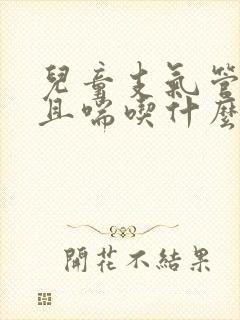 兒童支氣管
且喘喫什麼
開花不結果